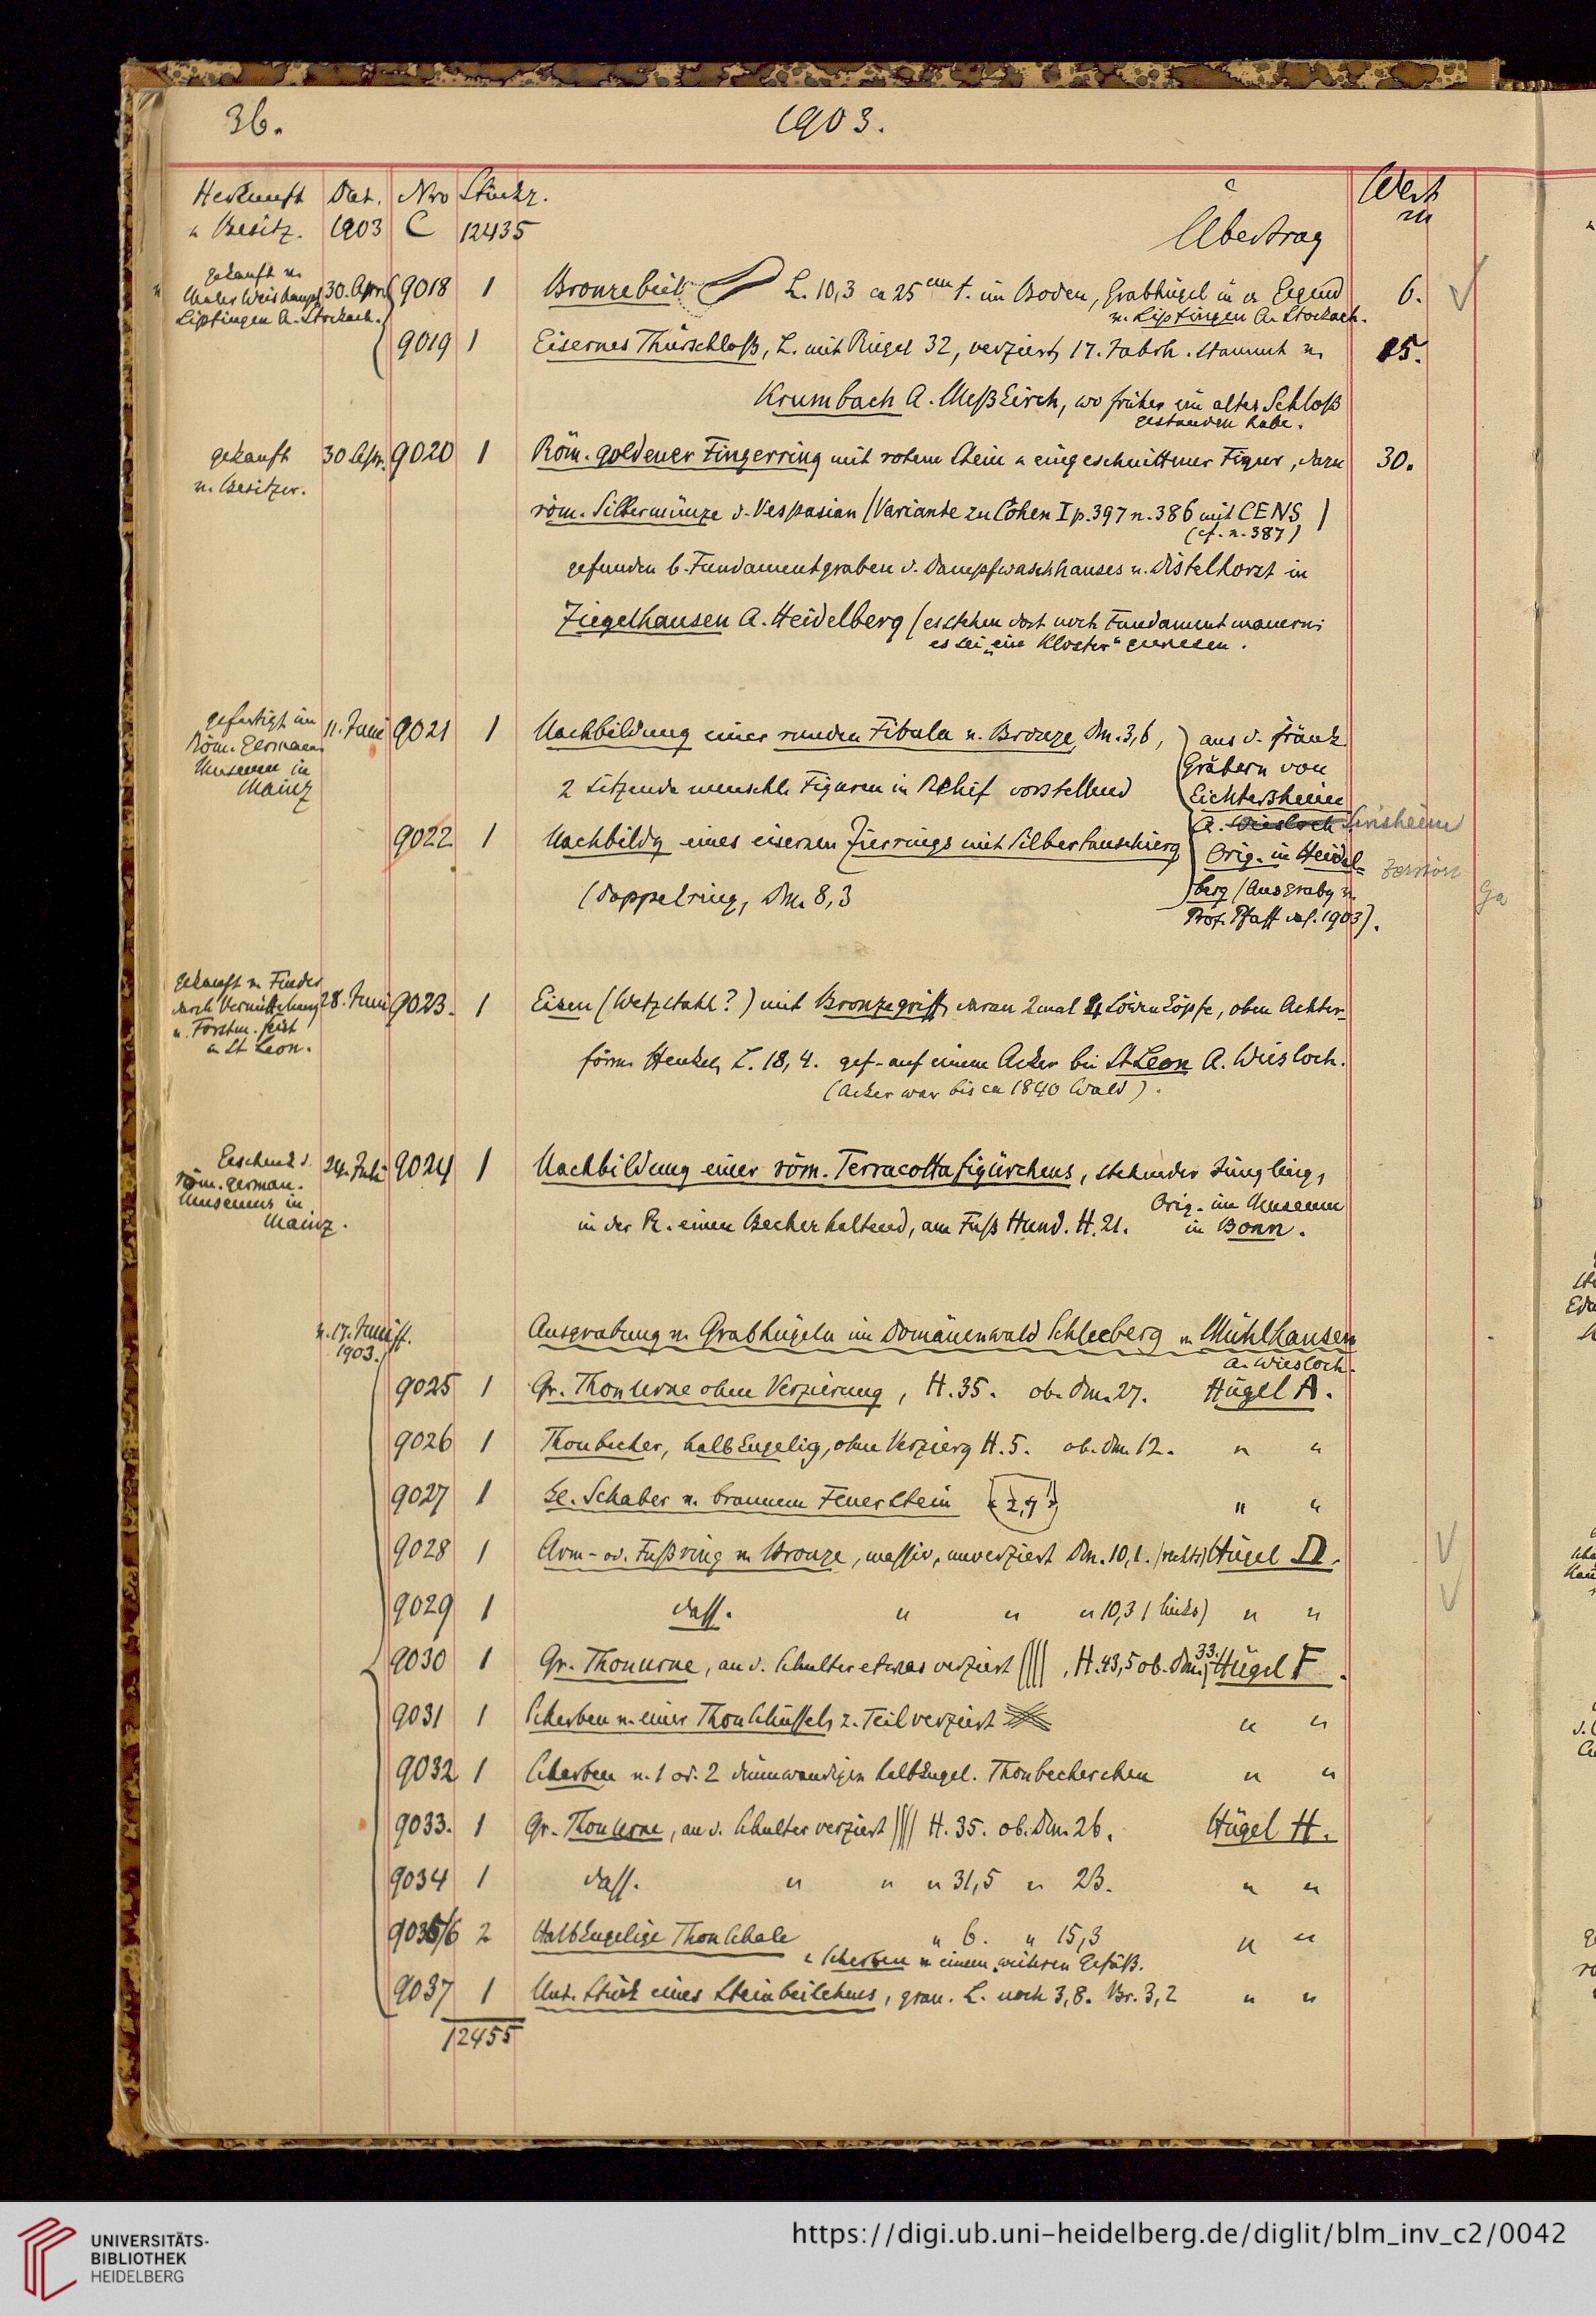 36.
1903.
Herkunft Dat. Nro Stückz. Wert
u Besitz. 1903 C 12435 Übertrag M
gekauft v.
Maler Weishaupt 30. April 9018 1 Bronzebeil L. 10,3 ca 25 cm t. im Boden, Grabhügel in d. Gegend 6.
Liptingen A. Stockach. v. Liptingen A. Stockach.
9019 1 Eisernes Thürschloß, L. mit Riegel 32, verziert, 17. Jahrh. stammt v. 15.
Krumbach A. Meßkirch, wo früher ein altes Schloß
gestanden habe.
gekauft 30 Apr. 9020 1 Röm. goldener Fingerring mit rotem Stein u eingeschnittener Figur, dazu 30.
v. Besitzer.
röm. Silbermünze d. Vespasian (Variante zu Cohen I p. 397 n. 386 mit CENS)
(cf. n. 387)
gefunden b. Fundamentgraben d. Dampfwaschhauses v. Distelhorst in
Ziegelhausen A. Heidelberg (es stehen dort noch Fundamentmauern;
es sei „ein Kloster“ gewesen.
gefertigt im 11. Juni 9021 1 Nachbildung einer runden Fibula v. Bronze, Dm. 3,6, aus d. fränk.
Röm. German. Gräbern von
Museum in 2 sitzende menschl. Figuren in Relief vorstellend Eichtersheim
Mainz
9022 1 Nachbildg eines eisernen Zierrings mit Silbertauschierg A. Wiesloch Sinsheim
Orig. in Heidel-
(Doppelring, Dm. 8,3 berg (Ausgrabg v.
Prof. Pfaff das. 1903).
gekauft v. Finder
durch Vermittelung 28. Juni 9023. 1 Eisen (Wetzstahl?) mit Bronzegriff, daran 2 mal 4 Löwenköpfe, oben Achter-
v. Forstm.
in St Leon. förm. Henkel, L. 18,4. gef. auf einem Acker bei St Leon A. Wiesloch.
(Acker war bis ca 1840 Wald).
Geschenk d. 24. Juli 9024 1 Nachbildung einer röm. Terracottafigürchens, stehender Jüngling,
röm. german.
Museums in Orig. im Museum
Mainz. in der R. einen Becher haltend, am Fuß Hund. H. 21. in Bonn.
v. 17. Juni ff. Ausgrabung v. Grabhügeln im Domänenwald Schleeberg v. Mühlhausen
1903. A. Wiesloch.
9025 1 Gr. Thonurne ohne Verzierung, H. 35. ob. Dm. 27. Hügel A.
9026 1 Thonbecher, halbkugelig, ohne Verzierg H. 5. ob. Dm. 12. " "
9027 1 kl. Schaber v. braunem Feuerstein 2,7 " "
9028 1 Arm- od. Fußring v. Bronze, massiv, unverziert Dm. 10,1. (rechts) Hügel D.
9029 1 dass. " " " 10,3 (links) " "
9030 1 Gr. Thonurne, an d. Schulter etwas verziert, H. 43,5 ob. Dm. 33. Hügel F.
9031 1 Scherben v. einer Thonschüssel, z. Teil verziert " "
9032 1 Scherben v. 1 od. 2 dünnwandigen halbkugel. Thonbecherchen " "
9033. 1 Gr. Thonurne, an d. Schulter verziert H. 35. ob. Dm. 26. Hügel H.
9034 1 dass. " " " 31,5 " 23. " "
9035/6 2 Halbkugelige Thonschale " 6. " 15,3 " "
u Scherben v. einem weiteren Gefäß.
9037 1 Unt. Stück eines Steinbeilchens, grau. L. noch 3,8. Br. 3,2 " "
12455
UNIVERSITÄTS-
BIBLIOTHEK
HEIDELBERG
https://digi.ub.uni-heidelberg.de/diglit/blm_inv_c2/0042